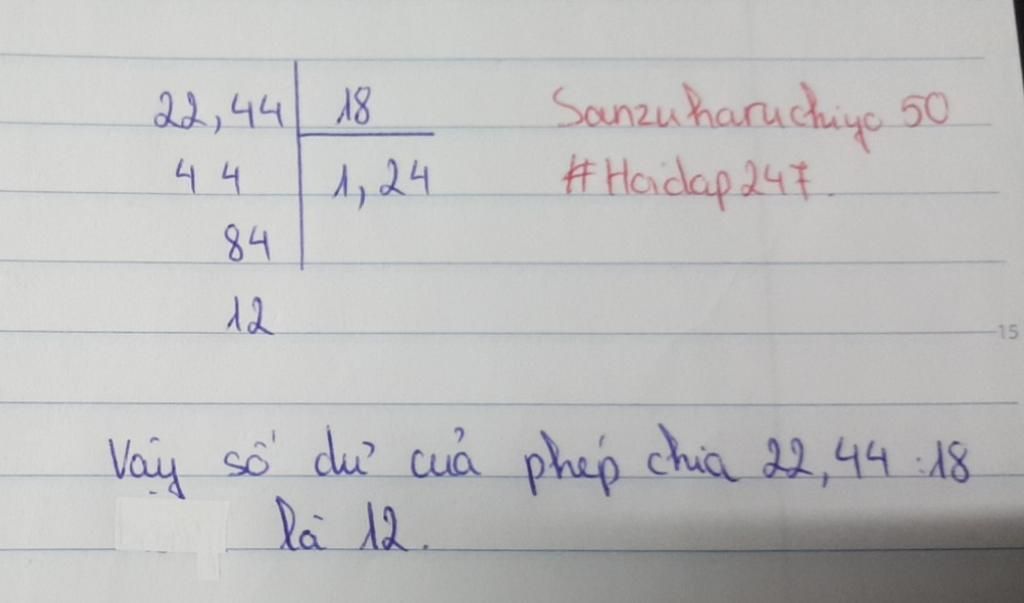 22,44 18 Sanzuharuchiyo 50
4 4 1,24 #Hoidap247.
84
12
15
Vậy số dư của phép chia 22,44 : 18
là 12.